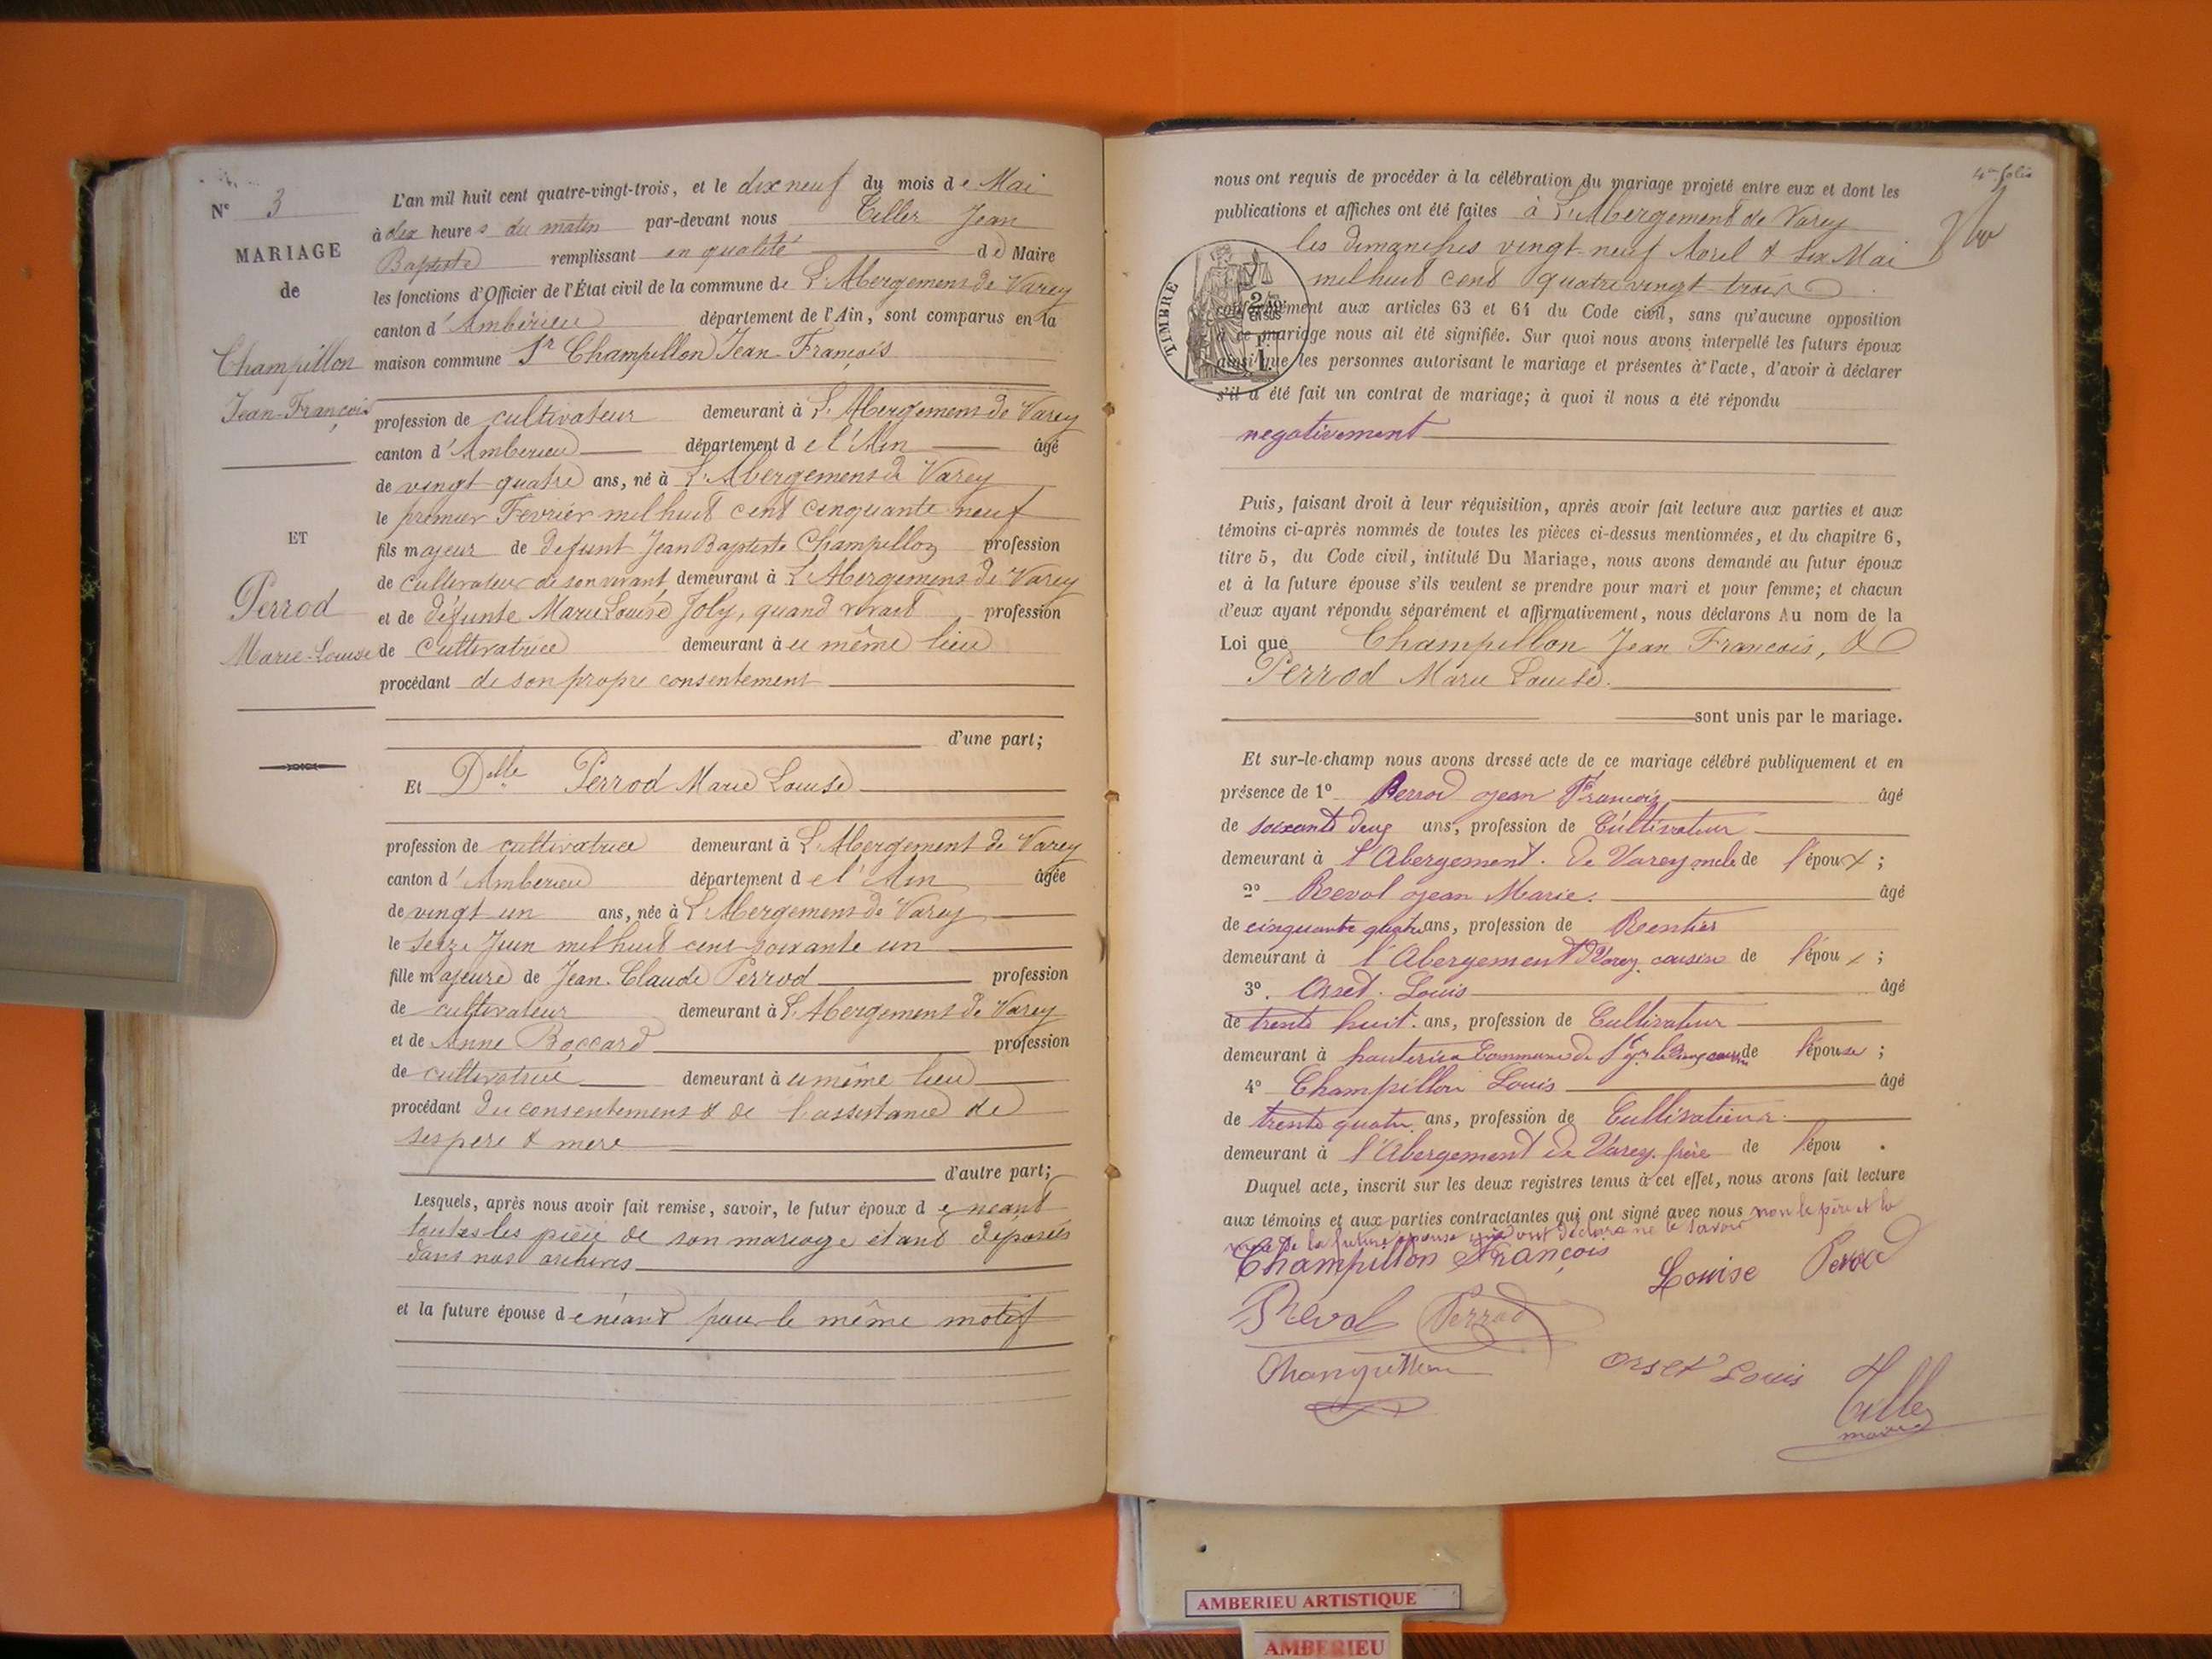 N° 3
MARIAGE
de
Champillon
Jean-François
ET
Perrod
Marie-Louise
L'an mil huit cent quatre-vingt-trois, et le dix neuf du mois de Mai
à dix heures du matin par-devant nous Tiller Jean
Baptiste remplissant en qualité de Maire
les fonctions d'Officier de l'État civil de la commune de L'Abergement de Varey
canton d'Ambérieu département de l'Ain, sont comparus en la
maison commune Sr Champillon Jean-François
profession de cultivateur demeurant à L'Abergement de Varey
canton d'Amberieu département de l'Ain âgé
de vingt quatre ans, né à L'Abergement de Varey
le premier Fevrier mil huit cent cinquante neuf
fils majeur de defunt Jean Baptiste Champillon profession
de cultivateur de son vivant, demeurant à L'Abergement de Varey
et de défunte Marie Louise Joly, quand vivait profession
de Cultivatrice demeurant à ce même lieu
procédant de son propre consentement
d'une part;
Et Delle Perrod Marie Louise
profession de cultivatrice demeurant à L'Abergement de Varey
canton d'Amberieu département de l'Ain âgée
de vingt un ans, née à L'Abergement de Varey
le seize Juin mil huit cent soixante un
fille majeure de Jean-Claude Perrod profession
de cultivateur demeurant à L'Abergement de Varey
et de Anne Boccard profession
de cultivatrice demeurant à ce même lieu
procédant du consentement & de l'assistance de
ses père & mère
d'autre part;
Lesquels, après nous avoir fait remise, savoir, le futur époux de neant
toutes les pièce de son mariage étant déposées
dans nos archives
et la future épouse de néant pour le même motif
4me folio
nous ont requis de procéder à la célébration du mariage projeté entre eux et dont les
publications et affiches ont été faites à L'Abergement de Varey
les dimanches vingt-neuf Avril & Six Mai
mil huit cent quatre vingt trois
TIMBRE
conformément aux articles 63 et 64 du Code civil, sans qu'aucune opposition
à ce mariage nous ait été signifiée. Sur quoi nous avons interpellé les futurs époux
ainsi que les personnes autorisant le mariage et présentes à l'acte, d'avoir à déclarer
s'il a été fait un contrat de mariage; à quoi il nous a été répondu
negativement
Puis, faisant droit à leur réquisition, après avoir fait lecture aux parties et aux
témoins ci-après nommés de toutes les pièces ci-dessus mentionnées, et du chapitre 6,
titre 5, du Code civil, intitulé Du Mariage, nous avons demandé au futur époux
et à la future épouse s'ils veulent se prendre pour mari et pour femme; et chacun
d'eux ayant répondu séparément et affirmativement, nous déclarons Au nom de la
Loi que Champillon Jean François, &
Perrod Marie Louise.
sont unis par le mariage.
Et sur-le-champ nous avons dressé acte de ce mariage célébré publiquement et en
présence de 1° Perrod Jean François âgé
de soixante deux ans, profession de Cultivateur
demeurant à l'Abergement de Varey oncle de l'époux;
2° Reval Jean Marie. âgé
de cinquante quatre ans, profession de Rentier
demeurant à l'Abergement d Varey cousin de l'époux;
3° Orset Louis âgé
de trente huit ans, profession de Cultivateur
demeurant à Commune de de l'épouse;
4° Champillon Louis âgé
de trente quatre ans, profession de Cultivateur
demeurant à l'Abergement de Varey frère de l'épou
Duquel acte, inscrit sur les deux registres tenus à cet effet, nous avons fait lecture
aux témoins et aux parties contractantes qui ont signé avec nous non le père et la
mère de la future épouse qui ont déclaré ne le savoir
Champillon François
Louise Perrod
Reval Perrod
Champillon
Orset Louis
Tiller
maire
AMBERIEU ARTISTIQUE
AMBERIEU